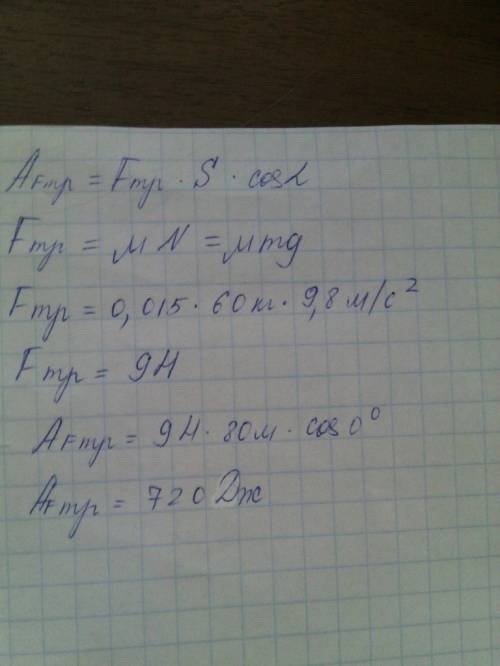 AFтр = Fтр · S · cosα
Fтр = μN = μmg
Fтр = 0,015 · 60кг · 9,8м/с²
Fтр = 9Н
AFтр = 9Н · 80м · cos0⁰
AFтр = 720Дж